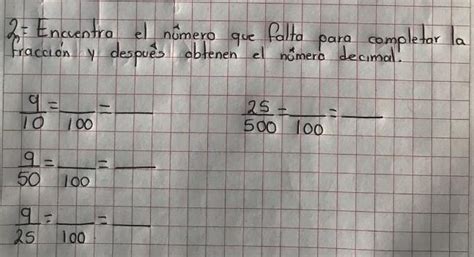 2= Encuentra el número que falta para completar la
fracción y después obtenen el número decimal.
9/10 = __/100 = __
25/500 = __/100 = __
9/50 = __/100 = __
9/25 = __/100 = __